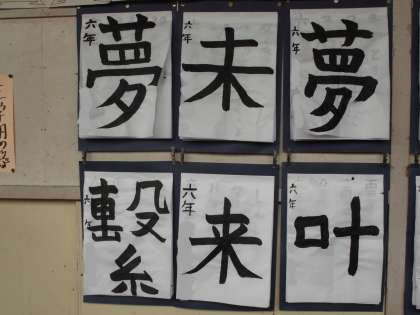 六年
夢
六年
未
六年
夢
六年
繫
六年
来
六年
叶